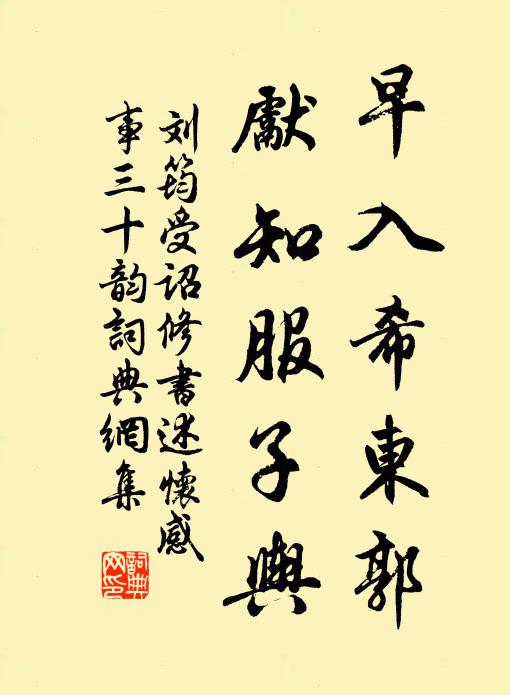 早入希東郭
獻知服子輿
刘筠受詔修書述懷感
事三十韵詞典網集
詞典
网印